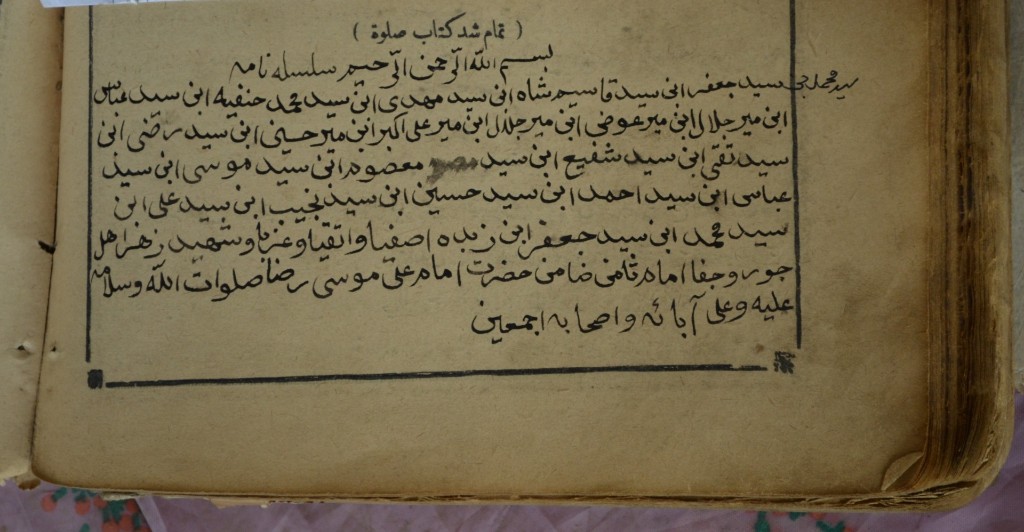 ( تمام شد کتاب صلوة )
بسم الله الرّحمن الرّحیم سلسله نامه
سید جعفر ابنی سید قاسیم شاه ابنی سید مهدی ابنی سید محمد حنفیه ابنی سید عباس
ابنی میر جلال ابنی میر عوضی ابنی میر جلال ابنی میر علی اکبر ابنی میر حسینی ابنی سید رضی ابنی
سید تقی ابنی سید شفیع ابنی سید معصوم ابنی سید موسی ابنی سید
عباسی ابنی سید احمد ابنی سید حسین ابنی سید نجیب ابنی سید علی ابن
سید محمد ابنی سید جعفر ابن زبده اصفیا و اتقیا و غربا و شهید زهر اهل
جور و جفا امام ثامنی ضامنی حضرت امام علی موسی رضا صلوات الله وسلامه
علیه وعلی آبائه واصحابه اجمعین